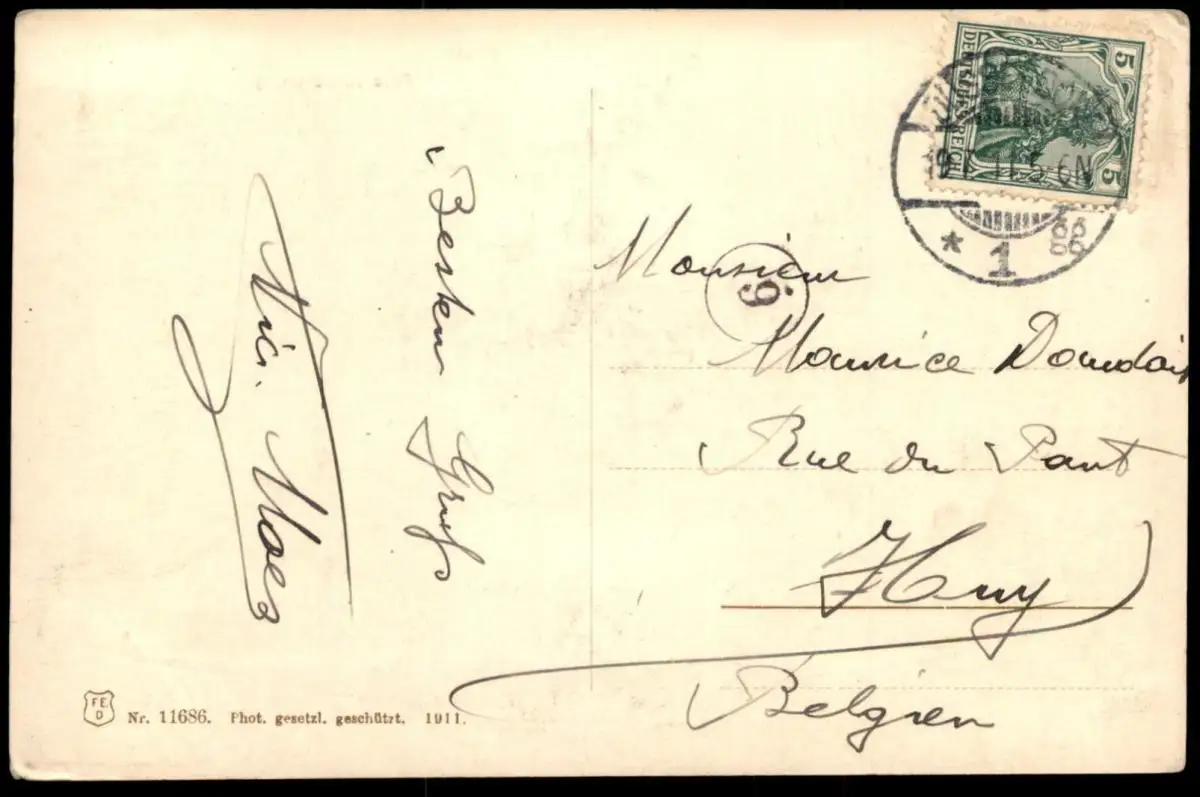 Besten Gruß
Vic. Maes
Monsieur
Maurice
Rue du Pont
Huy
Belgien
DEUTSCHES REICH
5
5
11.5-6N
* 1 gg
9
FE
D
Nr. 11686. Phot. gesetzl. geschützt. 1911.